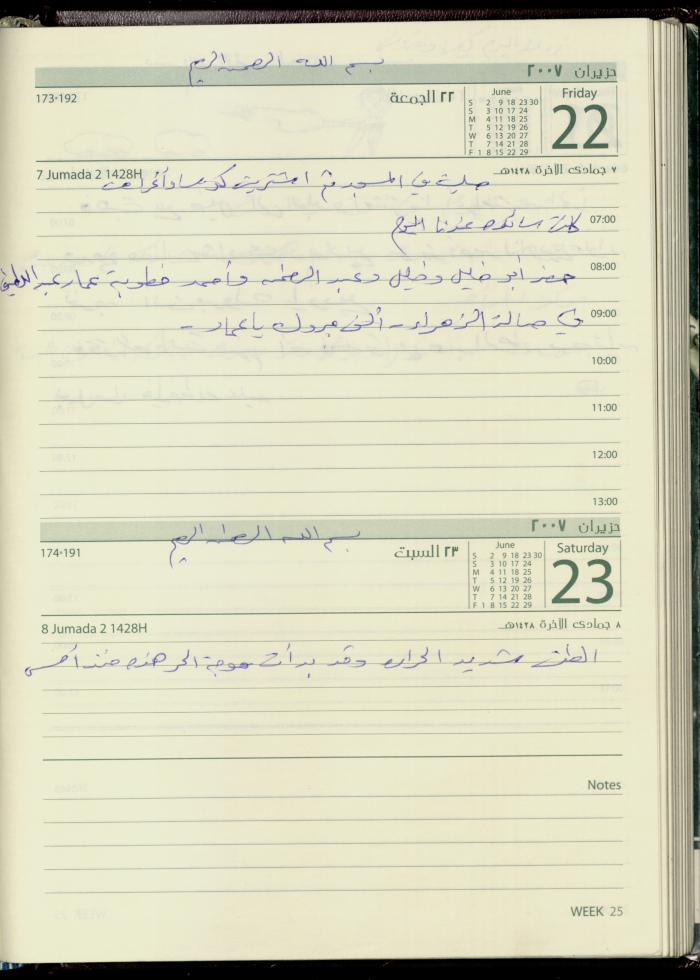 بسم الله الرحمن الرحيم
حزيران ٢٠٠٧
173-192
٢٢ الجمعة
June
S 2 9 16 23 30
S 3 10 17 24
M 4 11 18 25
T 5 12 19 26
W 6 13 20 27
T 7 14 21 28
F 1 8 15 22 29
Friday
22
7 Jumada 2 1428H
٧ جمادى الآخرة ١٤٢٨هـ
صليت في المسجد ثم اشتريت
07:00
عندنا اليوم
08:00
حضر أبو خليل وخليل وعبد الرحمن وأحمد خطوبة عمار
09:00
في صالة الزهراء - ألف مبروك يا عمار -
10:00
11:00
12:00
13:00
بسم الله الرحمن الرحيم
حزيران ٢٠٠٧
174-191
٢٣ السبت
June
S 2 9 16 23 30
S 3 10 17 24
M 4 11 18 25
T 5 12 19 26
W 6 13 20 27
T 7 14 21 28
F 1 8 15 22 29
Saturday
23
8 Jumada 2 1428H
٨ جمادى الآخرة ١٤٢٨هـ
الطقس شديد الحرارة وقد بدأت موجة الحر هذه منذ أمس
Notes
WEEK 25